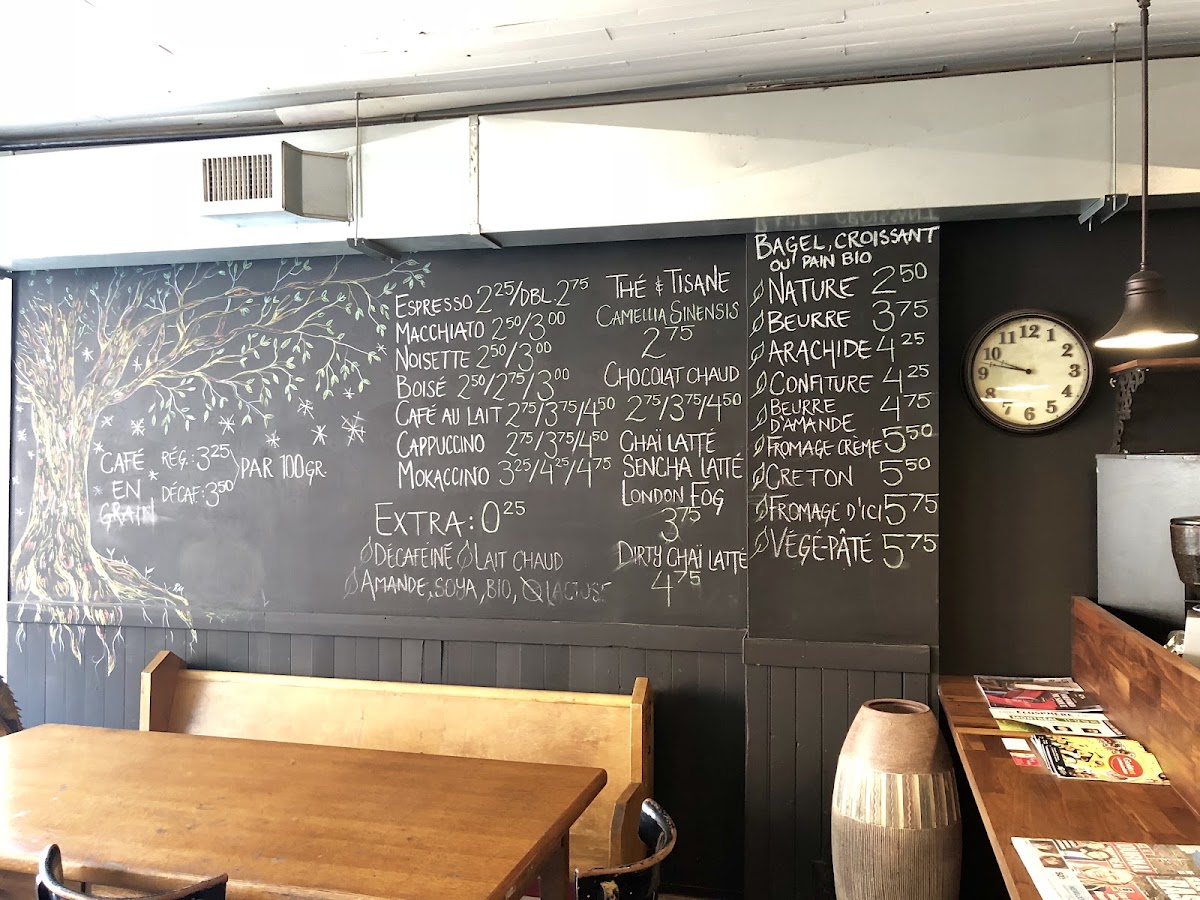 CAFÉ
EN
GRAIN
RÉG: 3.25
DÉCAF: 3.50
PAR 100 GR.
ESPRESSO 2.25/DBL. 2.75
MACCHIATO 2.50/3.00
NOISETTE 2.50/3.00
BOISÉ 2.50/2.75/3.00
CAFÉ AU LAIT 2.75/3.75/4.50
CAPPUCCINO 2.75/3.75/4.50
MOKACCINO 3.25/4.25/4.75
EXTRA: 0.25
DÉCAFEINÉ LAIT CHAUD
AMANDE, SOYA, BIO, LACTOSE
THÉ & TISANE
CAMELLIA SINENSIS
2.75
CHOCOLAT CHAUD
2.75/3.75/4.50
CHAÏ LATTÉ
SENCHA LATTÉ
LONDON FOG
3.75
DIRTY CHAÏ LATTÉ
4.75
BAGEL, CROISSANT
OU PAIN BIO
NATURE 2.50
BEURRE 3.75
ARACHIDE 4.25
CONFITURE 4.25
BEURRE
D'AMANDE 4.75
FROMAGE CRÈME 5.50
CRETON 5.50
FROMAGE D'ICI 5.75
VÉGÉ-PÂTÉ 5.75
12
1
2
3
4
5
6
7
8
9
10
11
ÉCOSPHÈRE